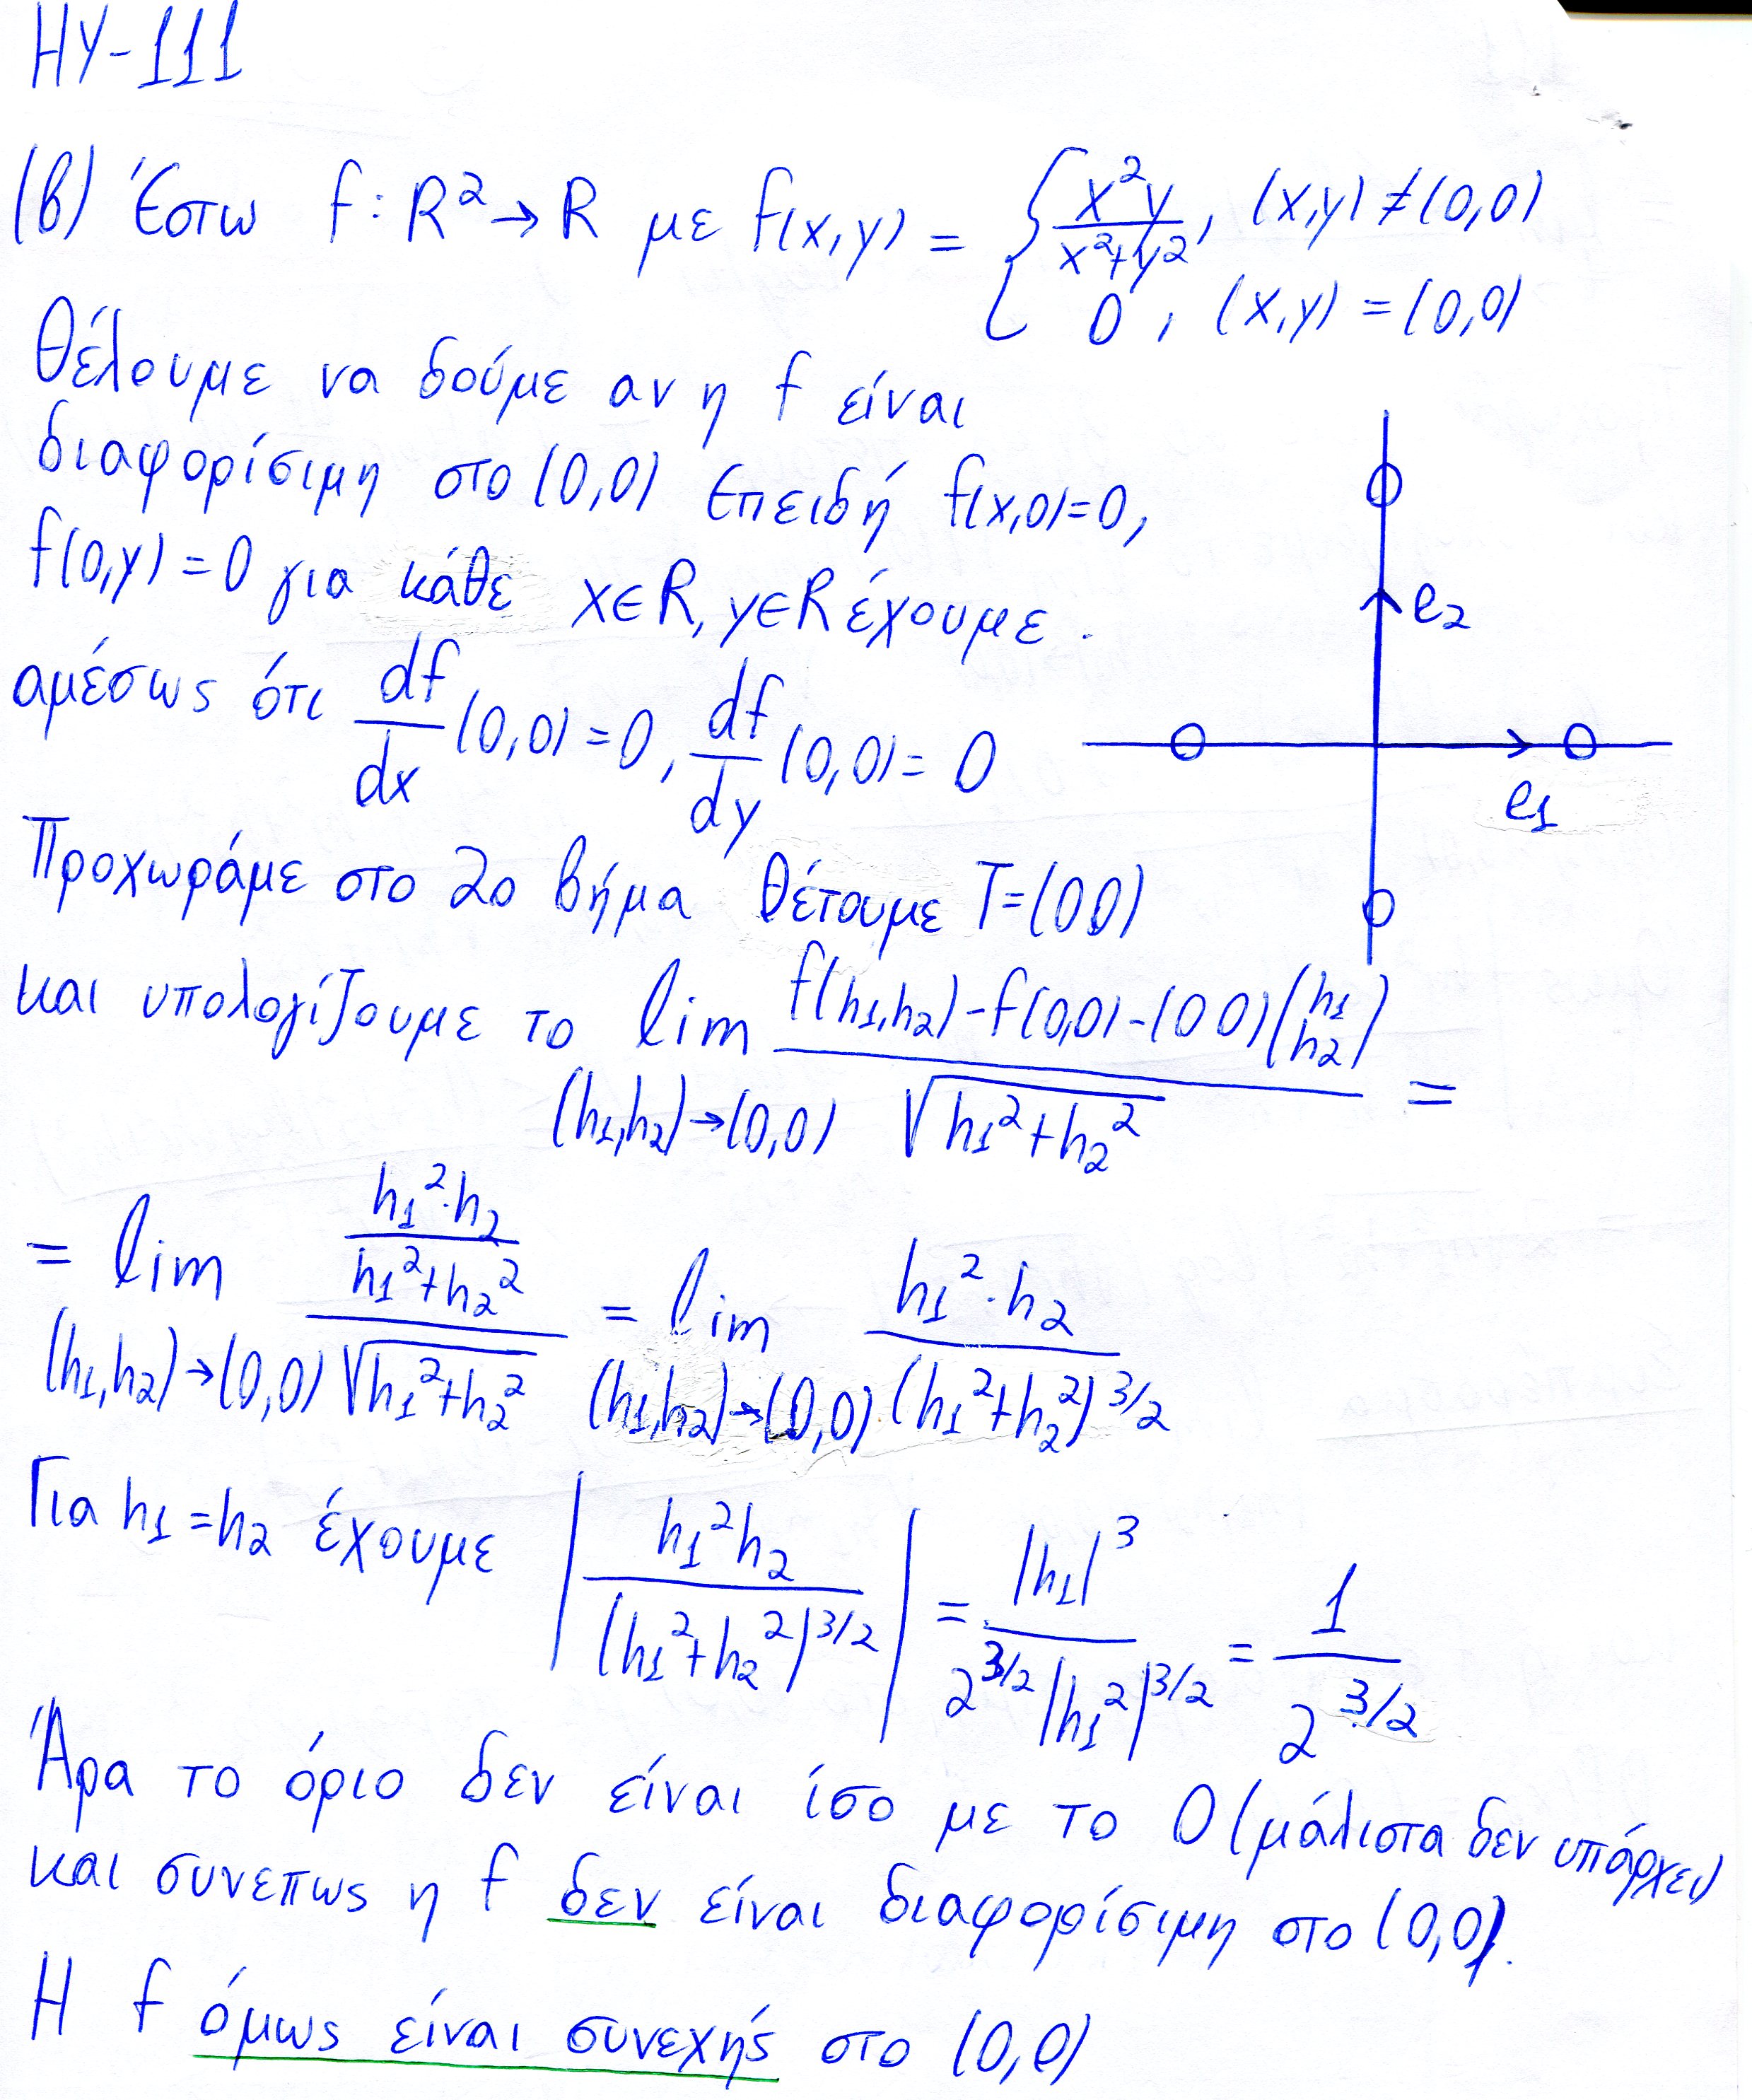 ΗΥ-111
(β) Έστω f: R² → R με f(x,y) = { x²y / x²+y², (x,y) ≠ (0,0)
0, (x,y) = (0,0)
Θέλουμε να δούμε αν η f είναι
διαφορίσιμη στο (0,0) Επειδή f(x,0)=0,
f(0,y)=0 για κάθε x∈R, y∈R έχουμε.
αμέσως ότι df/dx (0,0)=0, df/dy (0,0)=0
e2
e1
Προχωράμε στο 2ο βήμα θέτουμε T=(0 0)
και υπολογίζουμε το lim (h1,h2)→(0,0) f(h1,h2)-f(0,0)-(0 0)(h1 h2) / √h1²+h2² =
= lim (h1,h2)→(0,0) h1²·h2 / h1²+h2² / √h1²+h2² = lim (h1,h2)→(0,0) h1²·h2 / (h1²+h2²)^3/2
Για h1=h2 έχουμε | h1²h2 / (h1²+h2²)^3/2 | = |h1|³ / 2^3/2 |h1²|^3/2 = 1 / 2^3/2
Άρα το όριο δεν είναι ίσο με το 0 (μάλιστα δεν υπάρχει)
και συνεπως η f δεν είναι διαφορίσιμη στο (0,0).
Η f όμως είναι συνεχής στο (0,0)